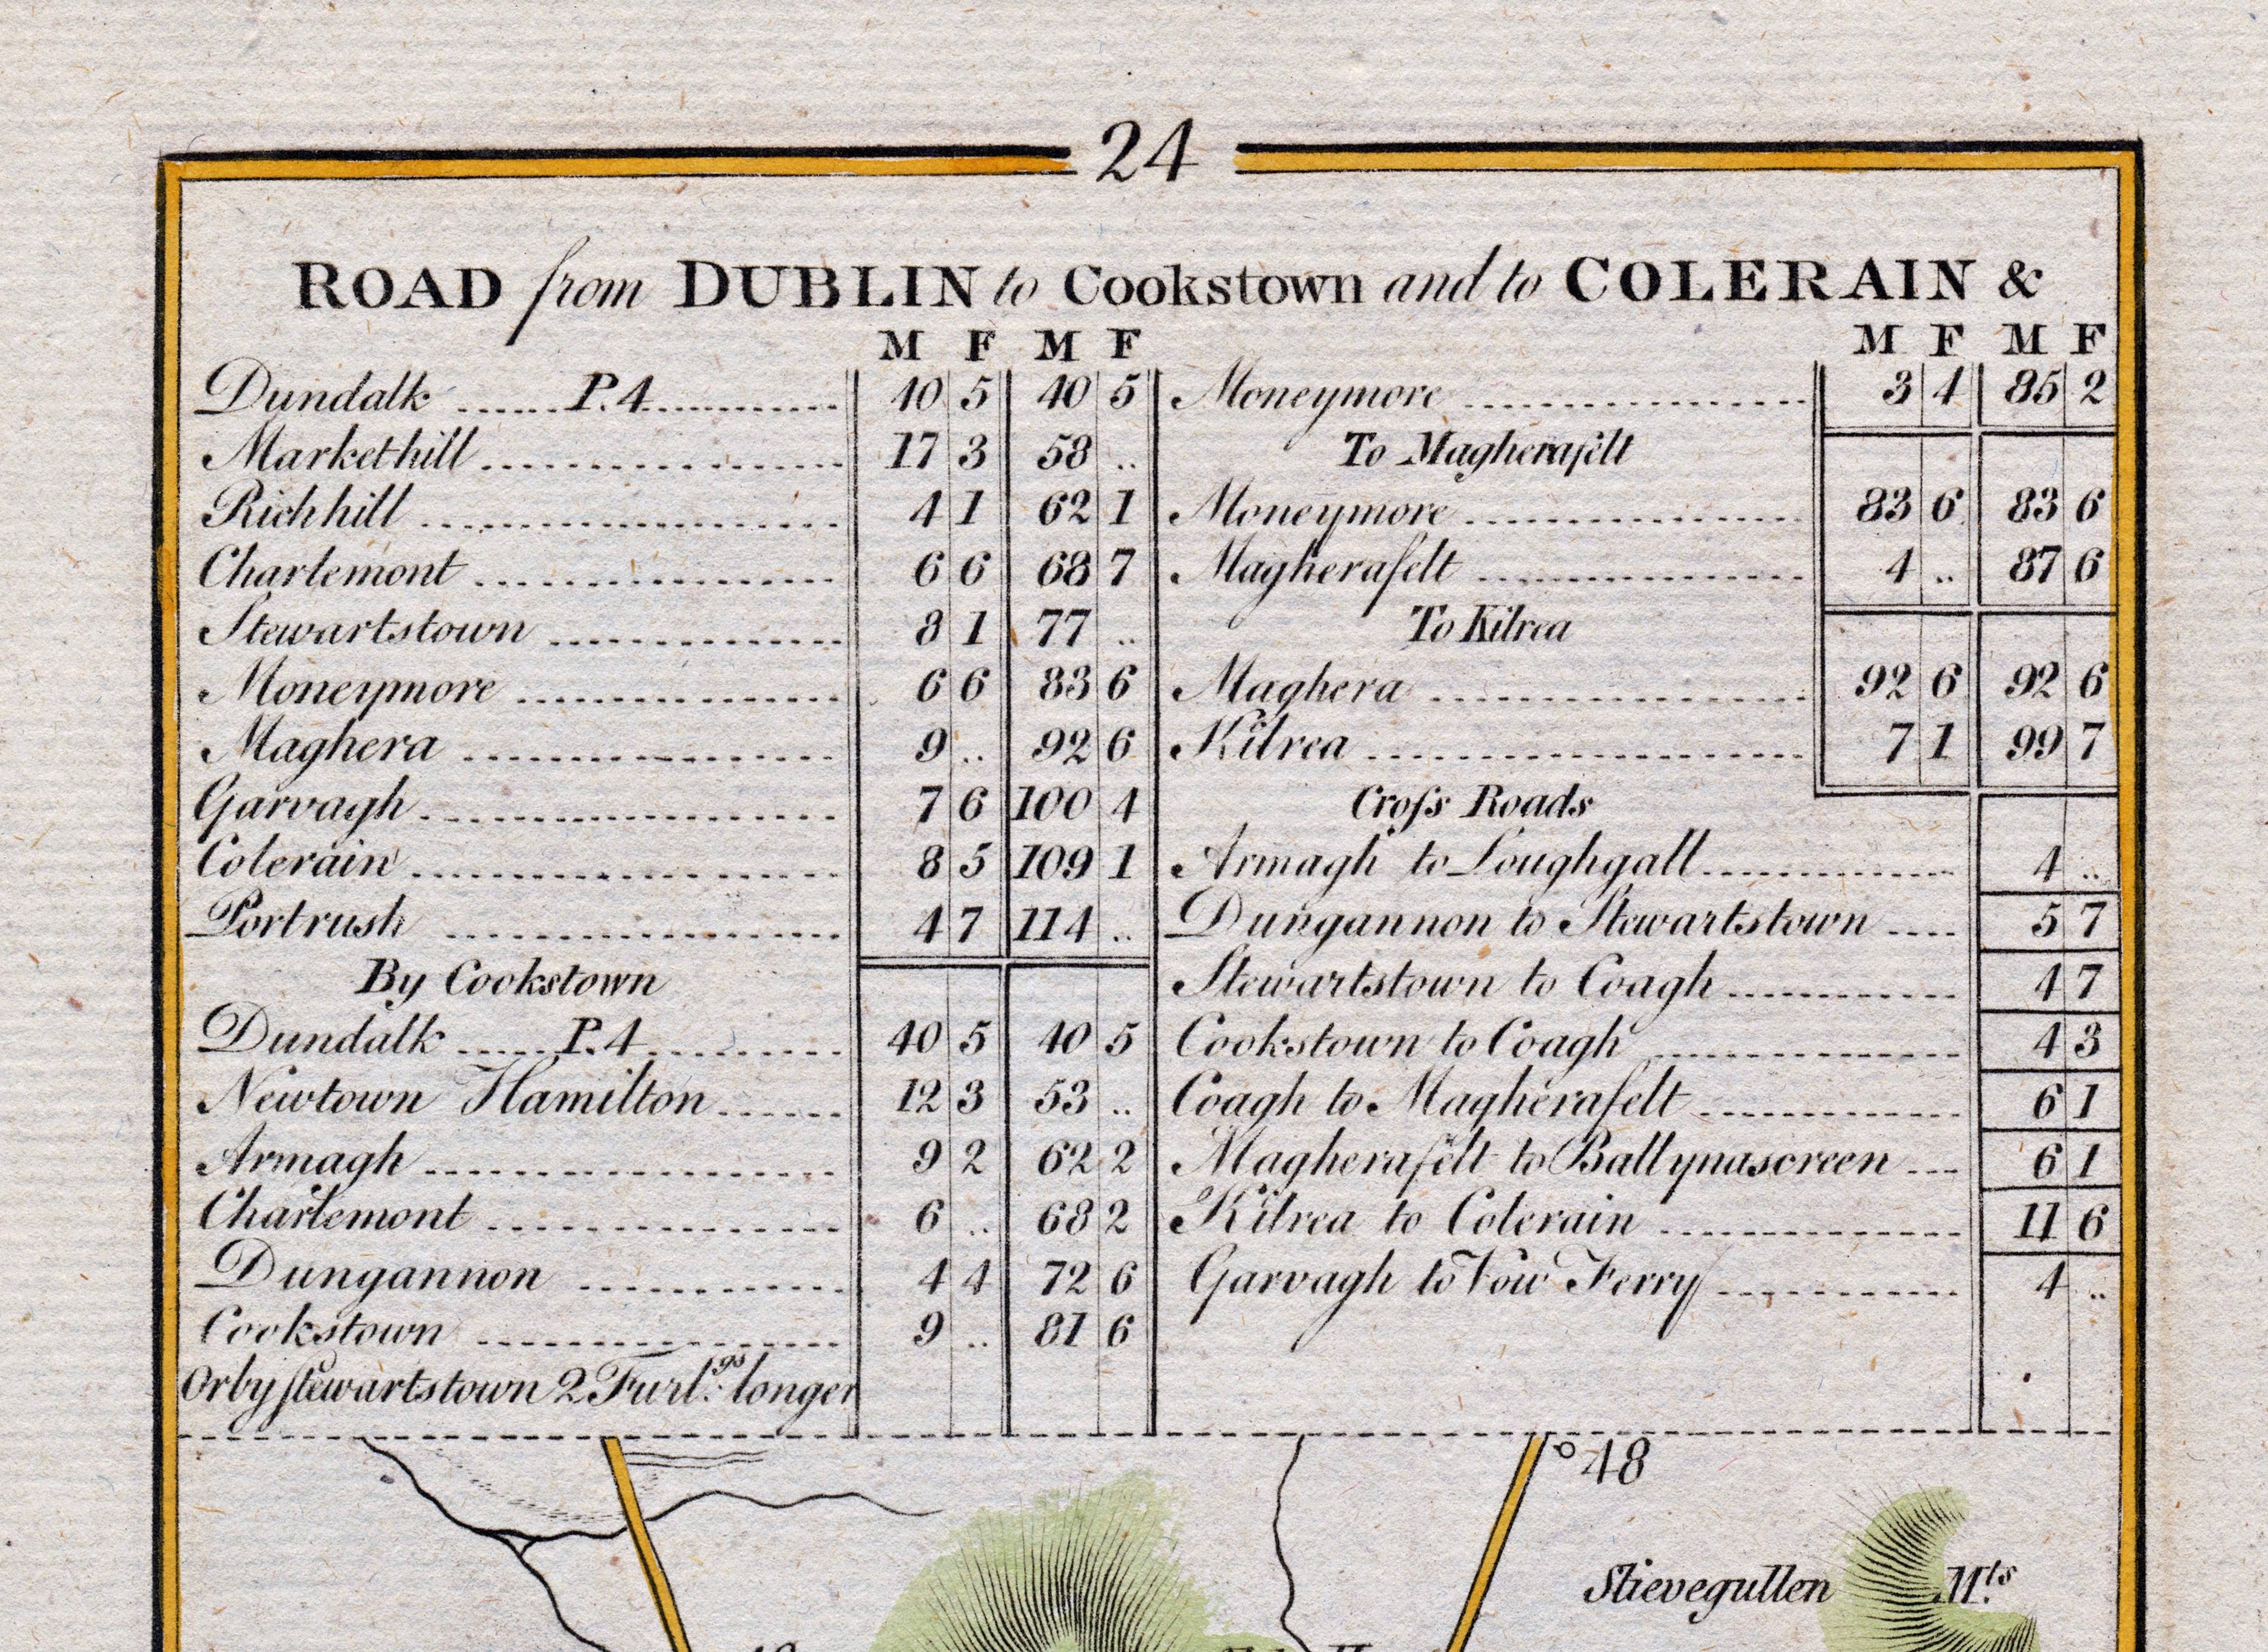 24
ROAD from DUBLIN to Cookstown and to COLERAIN &
M F M F
Dundalk ...... P.4 ............ 40 5 40 5
Markethill ............ 17 3 58 ..
Richhill ............ 4 1 62 1
Charlemont ............ 6 6 68 7
Stewartstown ............ 8 1 77 ..
Moneymore ............ 6 6 83 6
Maghera ............ 9 .. 92 6
Garvagh ............ 7 6 100 4
Colerain ............ 8 5 109 1
Portrush ............ 4 7 114 ..
By Cookstown
Dundalk ..... P.4 ............ 40 5 40 5
Newtown Hamilton ...... 12 3 53 ..
Armagh ............ 9 2 62 2
Charlemont ............ 6 .. 68 2
Dungannon ............ 4 4 72 6
Cookstown ............ 9 .. 81 6
Or by Stewartstown 2 Furl.gs longer
M F M F
Moneymore ............ 3 4 85 2
To Magherafelt
Moneymore ............ 83 6 83 6
Magherafelt ............ 4 .. 87 6
To Kilrea
Maghera ............ 92 6 92 6
Kilrea ............ 7 1 99 7
Croſs Roads
Armagh to Loughgall ............ 4 ..
Dungannon to Stewartstown .... 5 7
Stewartstown to Coagh ............ 4 7
Cookstown to Coagh ............ 4 3
Coagh to Magherafelt ............ 6 1
Magherafelt to Ballynascreen ... 6 1
Kilrea to Colerain ............ 11 6
Garvagh to Vow Ferry ............ 4 ..
48
Slievegullen Mts